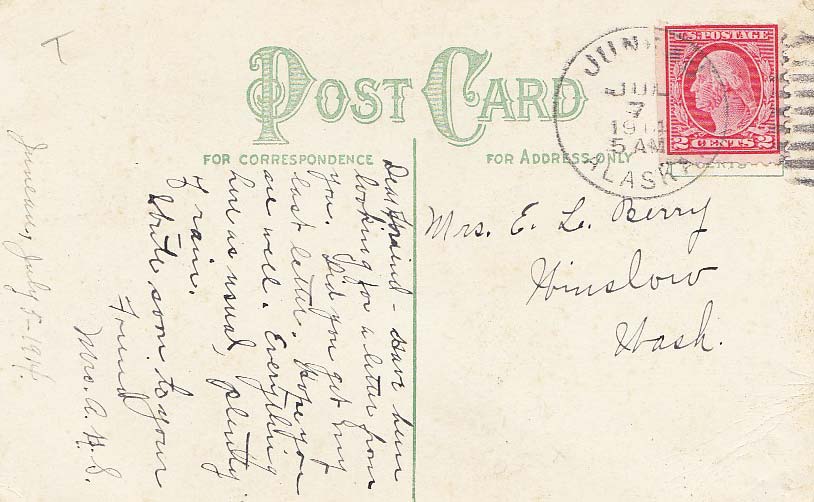 POST CARD
FOR CORRESPONDENCE
FOR ADDRESS ONLY
JUNEAU
JUL
7
1914
5 AM
ALASKA
U.S. POSTAGE
2 CENTS 2
Mrs. E. L. Berry
Winslow
Wash.
Juneau, July 5-1914.
Dear Freind - Have been
looking for a letter from
you. Did you get my
last letter. Hope you
are well. Everything
here as usual, plenty
of rain.
Write soon to your
Freind
Mrs. A. H. S.